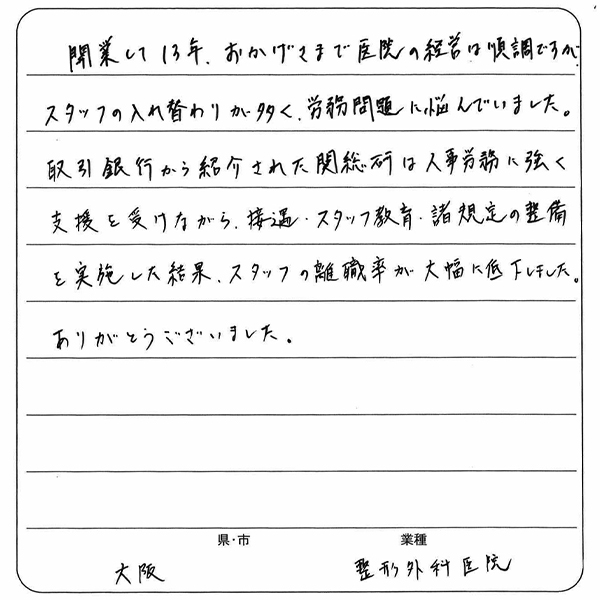 開業して13年、おかげさまで医院の経営は順調ですが、
スタッフの入れ替わりが多く、労務問題に悩んでいました。
取引銀行から紹介された関総研は人事労務に強く
支援を受けながら、接遇・スタッフ教育・諸規定の整備
を実施した結果、スタッフの離職率が大幅に低下しました。
ありがとうございました。
県・市 業種
大阪 整形外科医院